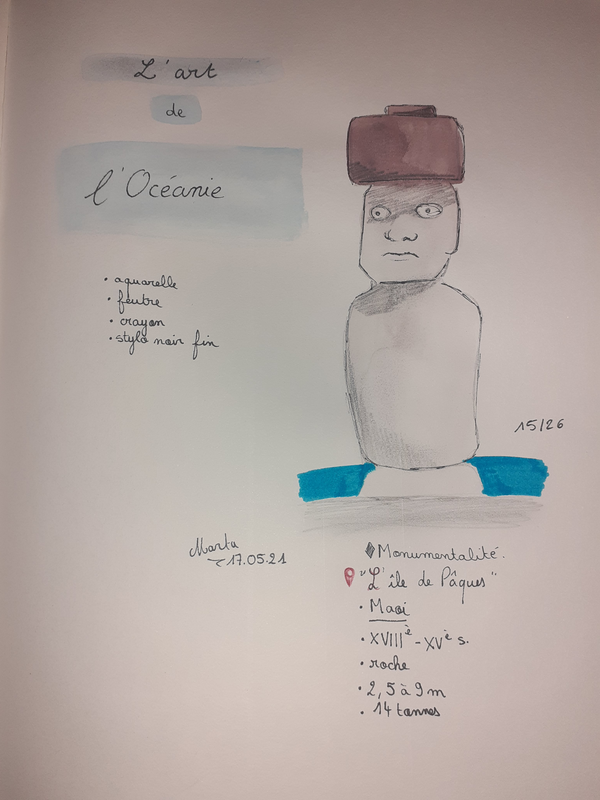 L'art
de
l'Océanie
• aquarelle
• feutre
• crayon
• stylo noir fin
15/26
Marta
17.05.21
Monumentalité.
"L'île de Pâques"
• Maoi
• XVIIIè - XVè s.
• roche
• 2,5 à 9 m
• 14 tonnes